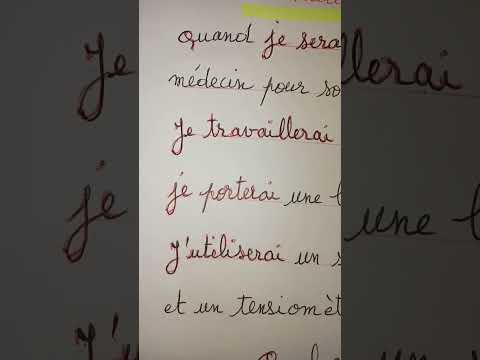 Quand je sera
médecin pour so
Je travaillerai
je porterai une
J'utiliserai un s
et un tensiomèt